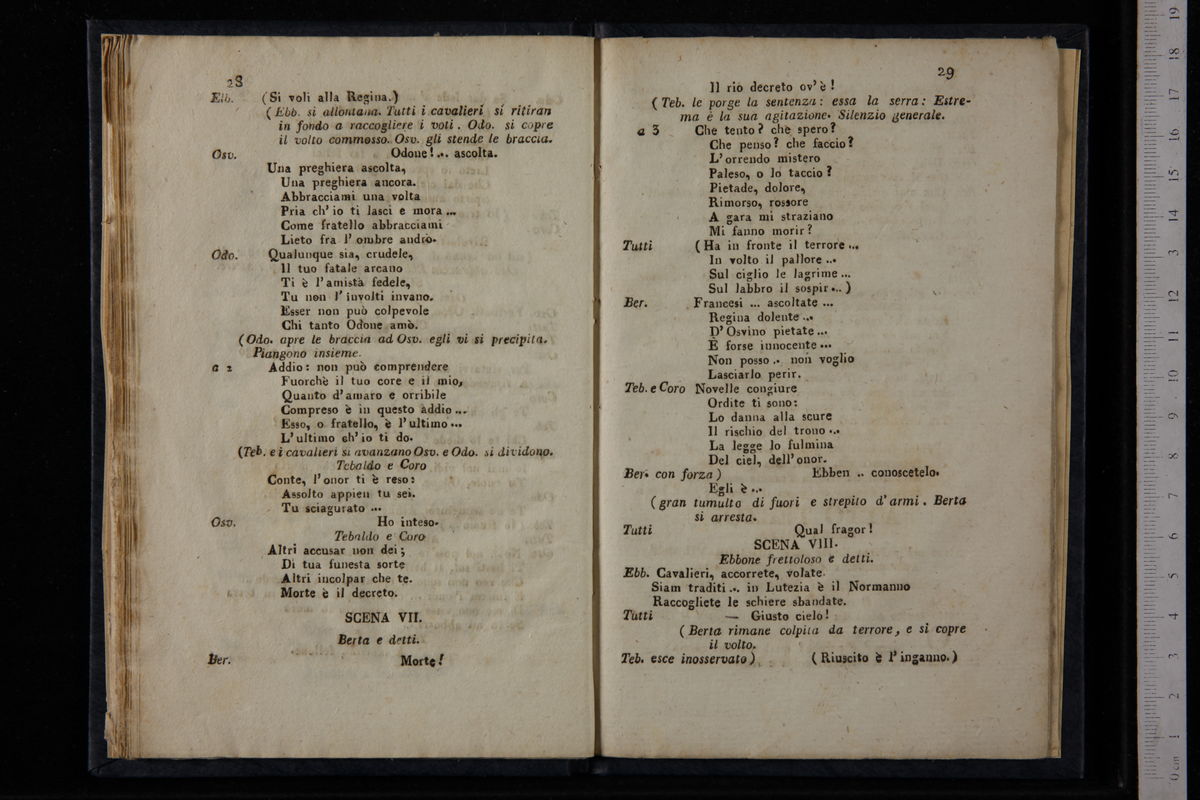 28
Ebb. (Si voli alla Regina.)
(Ebb. si allontana. Tutti i cavalieri si ritiran
in fondo a raccogliere i voti. Odo. si copre
il volto commosso. Osv. gli stende le braccia.
Osv. Odone!... ascolta.
Una preghiera ascolta,
Una preghiera ancora.
Abbracciami una volta
Pria ch' io ti lasci e mora ...
Come fratello abbracciami
Lieto fra l' ombre andrò.
Odo. Qualunque sia, crudele,
Il tuo fatale arcano
Ti è l'amistà fedele,
Tu non l' involti invano.
Esser non può colpevole
Chi tanto Odone amò.
(Odo. apre le braccia ad Osv. egli vi si precipita.
Piangono insieme.
a 2 Addio: non può comprendere
Fuorchè il tuo core e il mio,
Quanto d'amaro e orribile
Compreso è in questo addio ...
Esso, o fratello, è l'ultimo ...
L'ultimo ch' io ti do.
(Teb. e i cavalieri si avanzano Osv. e Odo. si dividono.
Tebaldo e Coro
Conte, l'onor ti è reso:
Assolto appien tu sei.
Tu sciagurato ...
Osv. Ho inteso.
Tebaldo e Coro
Altri accusar non dei;
Di tua funesta sorte
Altri incolpar che te.
Morte è il decreto.
SCENA VII.
Berta e detti.
Ber. Morte!
29
Il rio decreto ov' è!
(Teb. le porge la sentenza: essa la serra: Estre-
ma è la sua agitazione. Silenzio generale.
a 3 Che tento? che spero?
Che penso? che faccio?
L'orrendo mistero
Paleso, o lo taccio?
Pietade, dolore,
Rimorso, rossore
A gara mi straziano
Mi fanno morir?
Tutti (Ha in fronte il terrore ...
In volto il pallore ...
Sul ciglio le lagrime ...
Sul labbro il sospir ...)
Ber. Francesi ... ascoltate ...
Regina dolente ...
D' Osvino pietate ...
È forse innocente ...
Non posso .. non voglio
Lasciarlo perir.
Teb. e Coro Novelle congiure
Ordite ti sono:
Lo danna alla scure
Il rischio del trono ...
La legge lo fulmina
Del ciel, dell' onor.
Ber. con forza) Ebben .. conoscetelo.
Egli è ...
(gran tumulto di fuori e strepito d'armi. Berta
si arresta.
Tutti Qual fragor!
SCENA VIII.
Ebbone frettoloso e detti.
Ebb. Cavalieri, accorrete, volate.
Siam traditi ... in Lutezia è il Normanno
Raccogliete le schiere sbandate.
Tutti — Giusto cielo!
(Berta rimane colpita da terrore, e si copre
il volto.
Teb. esce inosservato) (Riuscito è l'inganno.)
0 cm 1 2 3 4 5 6 7 8 9 10 11 12 13 14 15 16 17 18 19